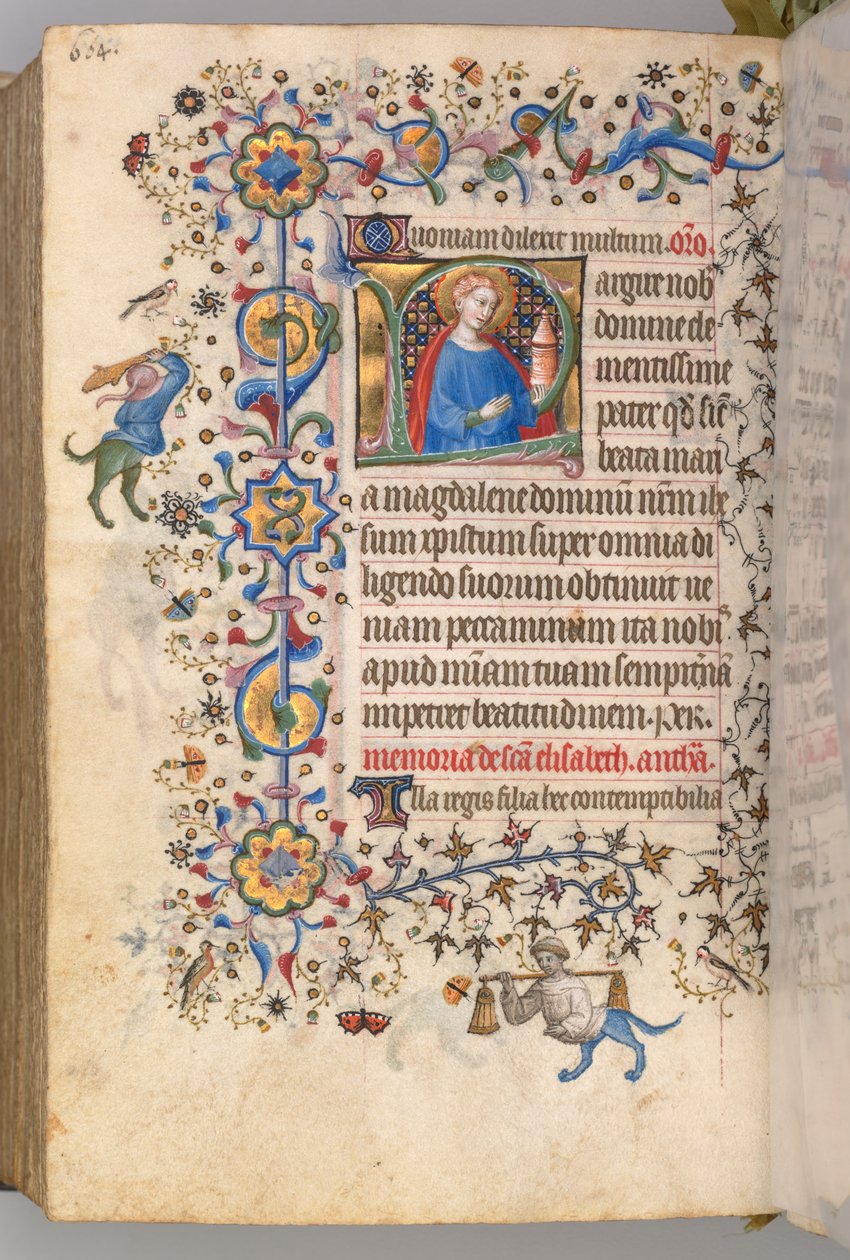 664.
Quoniam dilexit multum. oro.
Largire nob
domine cle
mentissime
pater qd sic
beata mari
a magdalene dominū nrm ihe
sum xpistum super omnia di
ligendo suorum obtinuit ue
niam peccaminum ita nobis
apud miam tuam sempitnā
impetret beatitudinem. Per.
memoria de scā elisabeth. anthā.
Illa regis filia hec contemptibilia